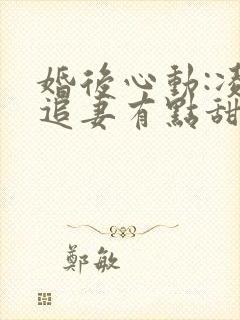 婚後心動:凌
追妻有點甜
鄭敏